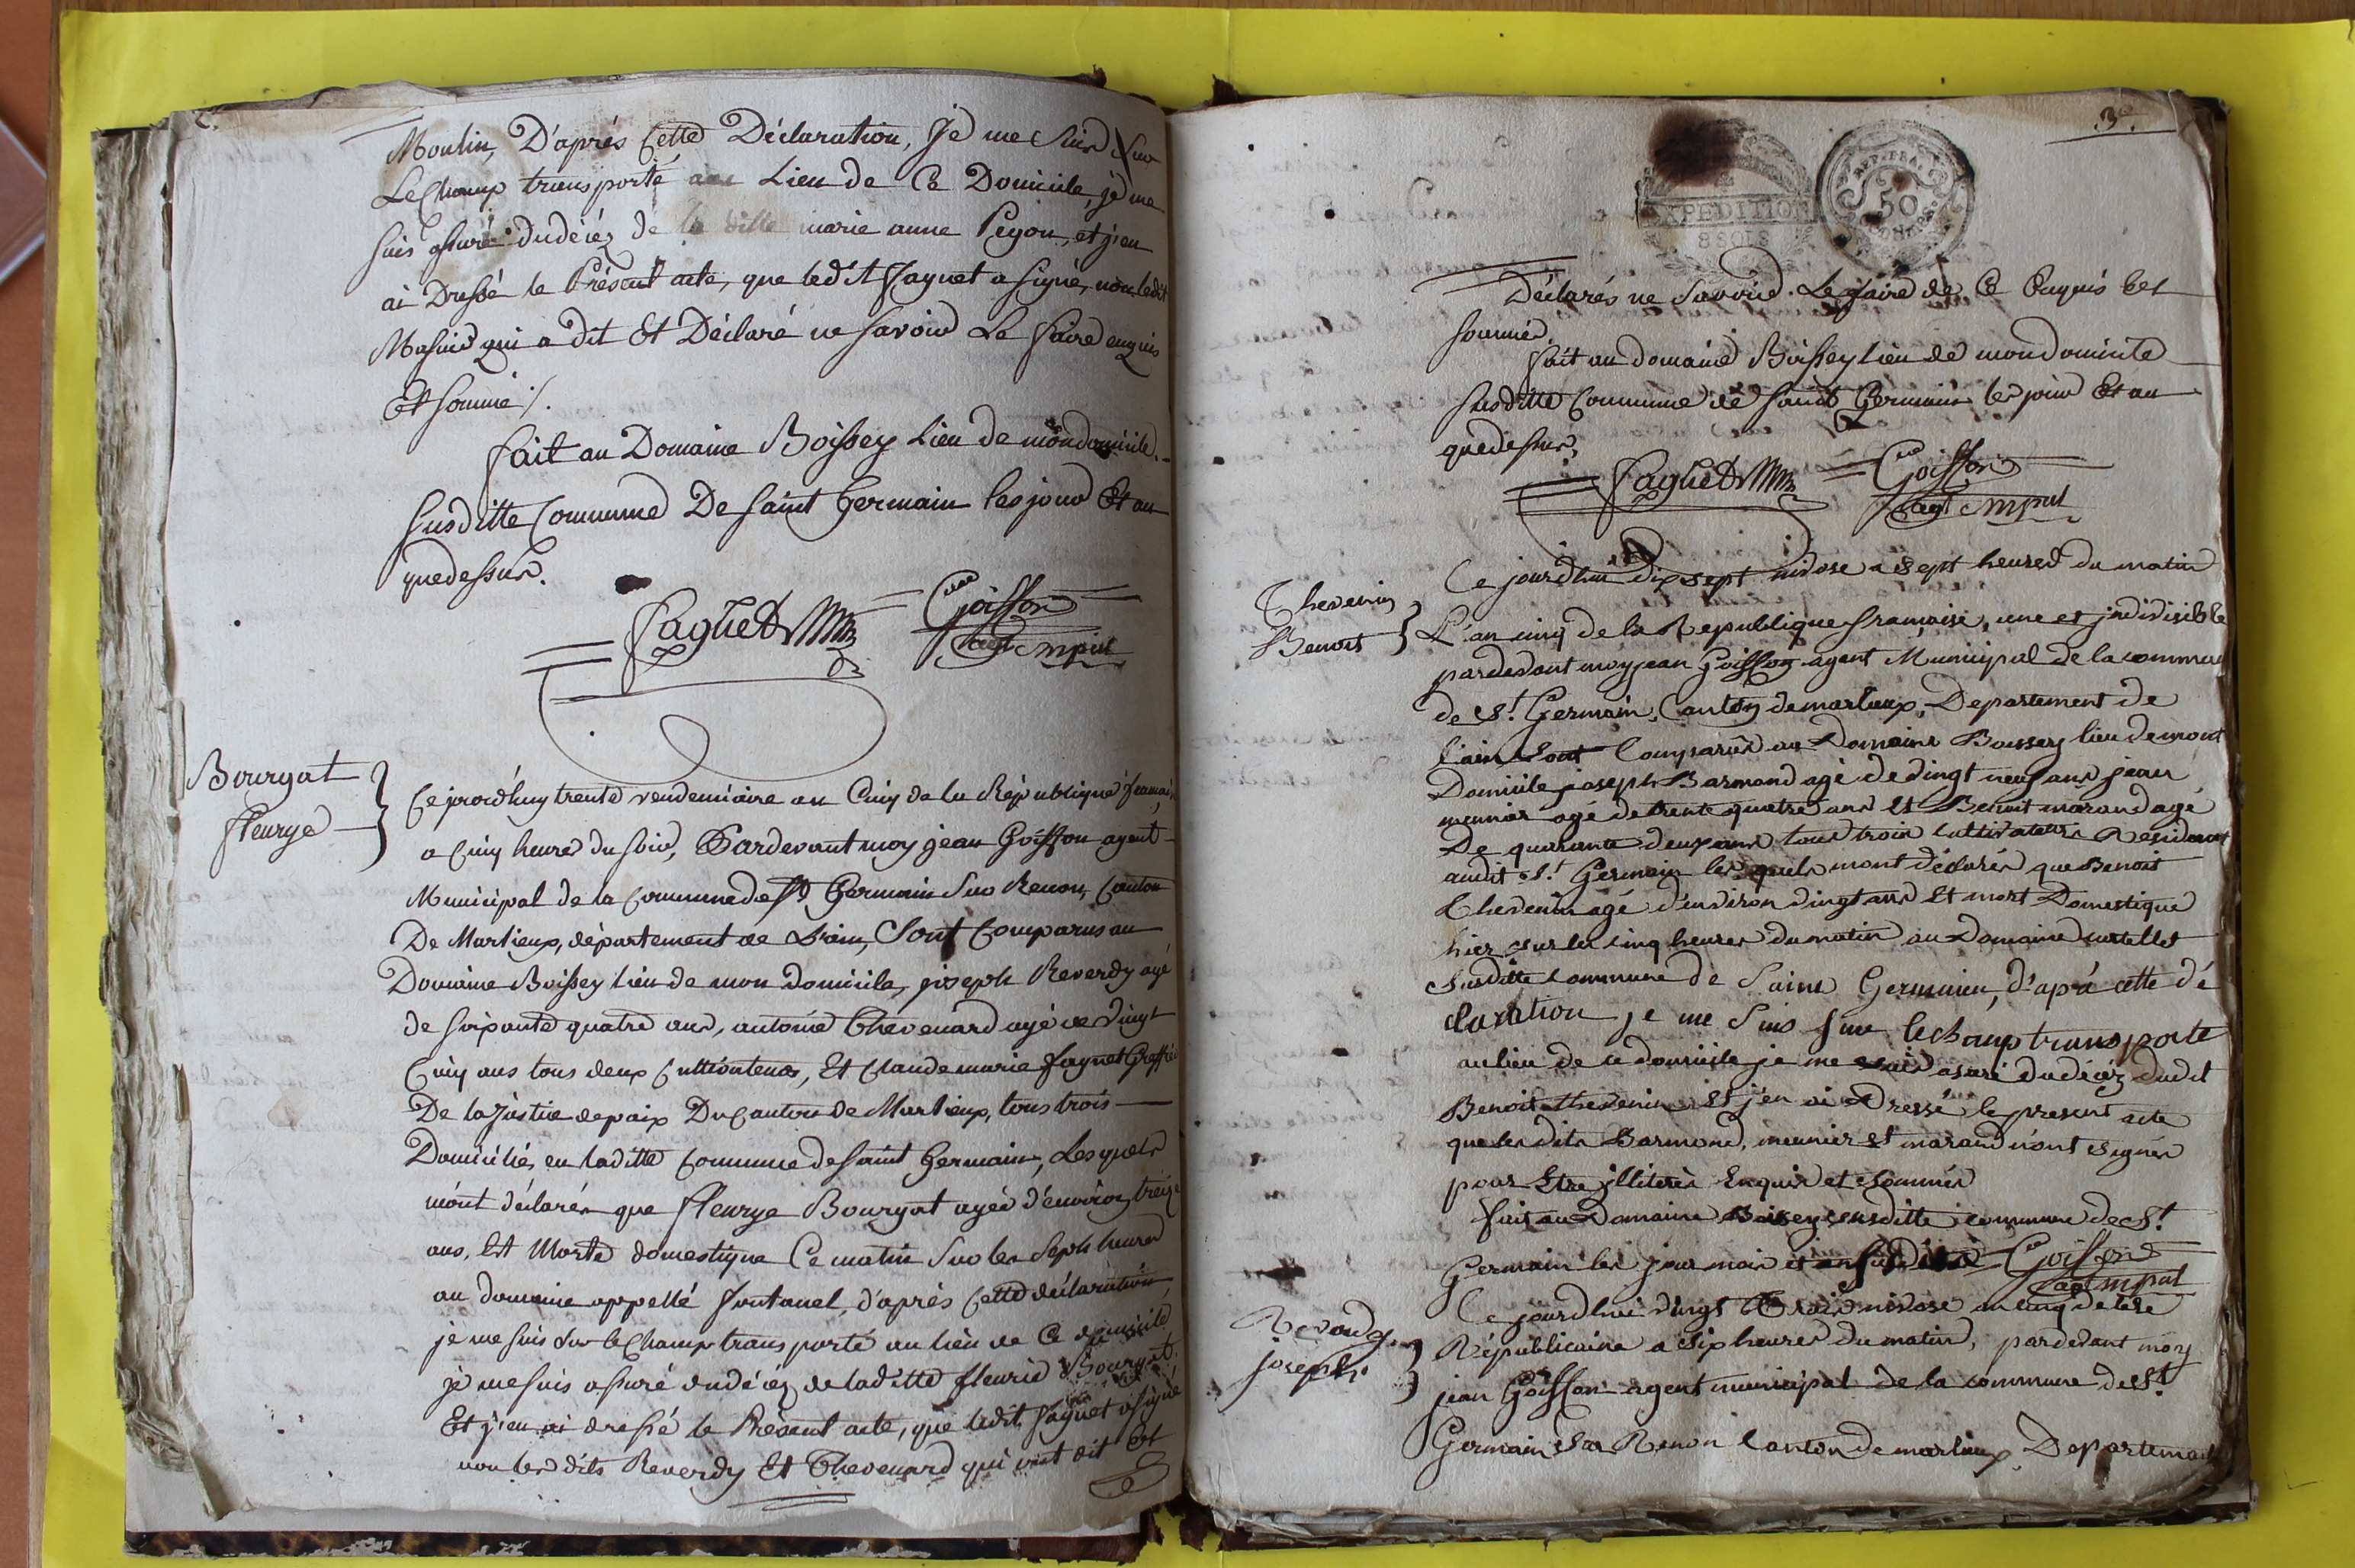 Moulin, D'après Cette Déclaration, Je me Suis Sur
Le Champ transporté au Lieu de Ce Domicile, je me
suis assuré dudécéz de la ditte marie anne Peyon, et j'en
ai Dressé le Présent acte, que ledit Faguet a signé, non ledit
Masuir qui a dit Et Déclaré ne savoir Le faire enquis
Et sommé ∕.
fait au Domaine Boissey Lieu de mondomicile.
Susditte Commune De Saint Germain les jour Et an
quedessus.
Faguet Goiffon
agt mpal
Bourgat
fleurye
Ce jourd'huy trente vendemiaire an Cinq de la République francaise
a Cinq heures du soir, Pardevant moy jean Goiffon agent
Municipal de la Commune de St Germain Sur Renon, Canton
De Marlieux, département de L'ain, Sont Comparus au
Domaine Boissey lieu de mon domicile, joseph Reverdy agé
de soixante quatre ans, antoine Thevenard agé de vingt
Cinq ans tous deux Cultivateurs, Et Claude marie Faguet Greffier
De la justice depaix Du Canton de Marlieux, tous trois
Domiciliés en laditte Commune de Saint Germain, Lesquels
m'ont déclarés que fleurye Bourgat agée d'environ treize
ans, Est Morte domestique Ce matin Sur les Sept heures
au domaine appellé fontanel, d'après Cette déclaration,
je me suis Sur le Champ transporté au lieu de Ce domicile
je me suis assuré dudécéz de laditte fleurie Bourgat.
Et j'en ai dressé le Présent acte, que ledit Faguet a signé
non les dits Reverdy Et Thevenard qui ont dit Et
3e.
EXPEDITION
8 SOLS
50
Déclarés ne Savoir Le faire de Ce Enquis Et
sommés.
fait au domaine Boissey lieu de mondomicile
Susditte Commune de Saint Germain les jour Et an
quedessus,
Faguet Goiffon
agt mpal
Thevenin
Benoit
Ce jourdhui dix sept nivose a sept heures du matin
L'an cinq de la Republique francaise, une et jndivisible
pardevant moy jean Goiffon agent Municipal de la commune
de St. Germain, Canton de marlieux, Departement de
l'ain Sont Comparus au Domaine Boissey lieu de mont
Domicile joseph Barmond agé de vingt neuf ans jean
meunier agé de trente quatre ans Et Benoit marand agé
De quarante deux ans tous trois Cultivateurs Residant
audit St. Germain lesquels mont déclarés que Benoit
Thevenin agé d'environ vingt ans Et mort Domestique
hier sur les cinq heures du matin au Domaine
Susditte Commune de Saint Germain, d'apré cette dé
claration je me Suis Sur le champ transporté
au lieu de ce domicile je me suis asuré dudécéz dudit
Benoit thevenin Et j'en ai Dressé le present acte
que les dits Barmond, meunier et marand n'ont signés
pour Etre jlliterés Enquis et Sommés
fait au Domaine Boissey susditte commune de St.
Germain les jour mois et an Goiffon
agt mpal
Reverdy
joseph
Ce jourdhui vingt trois nivose an cinq de lere
Républicaine a six heures du matin, pardevant moy
jean Goiffon agent municipal de la commune de St.
Germain Sur Renon Canton de marlieux, Departement